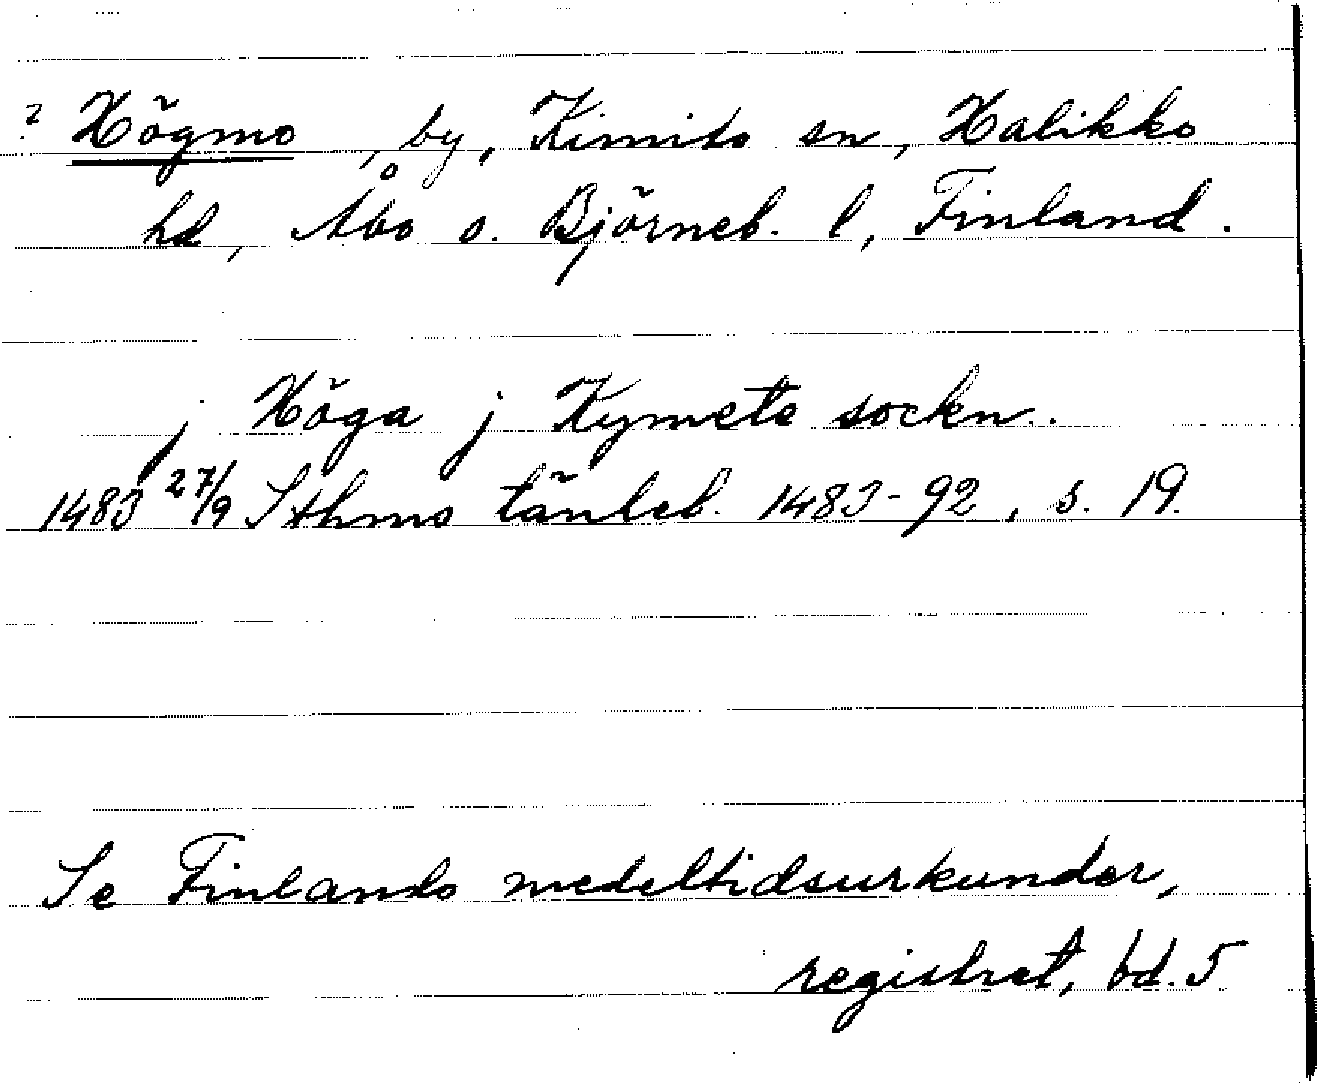 ? Högmo, by, Kimito sn, Halikko
hd, Åbo o. Björneb. l, Finland.
j Höga j Kymete sockn.
1483 27/9 Sthms tänkeb. 1483-92, s. 19.
Se Finlands medeltidsurkunder,
registret, bd. 5